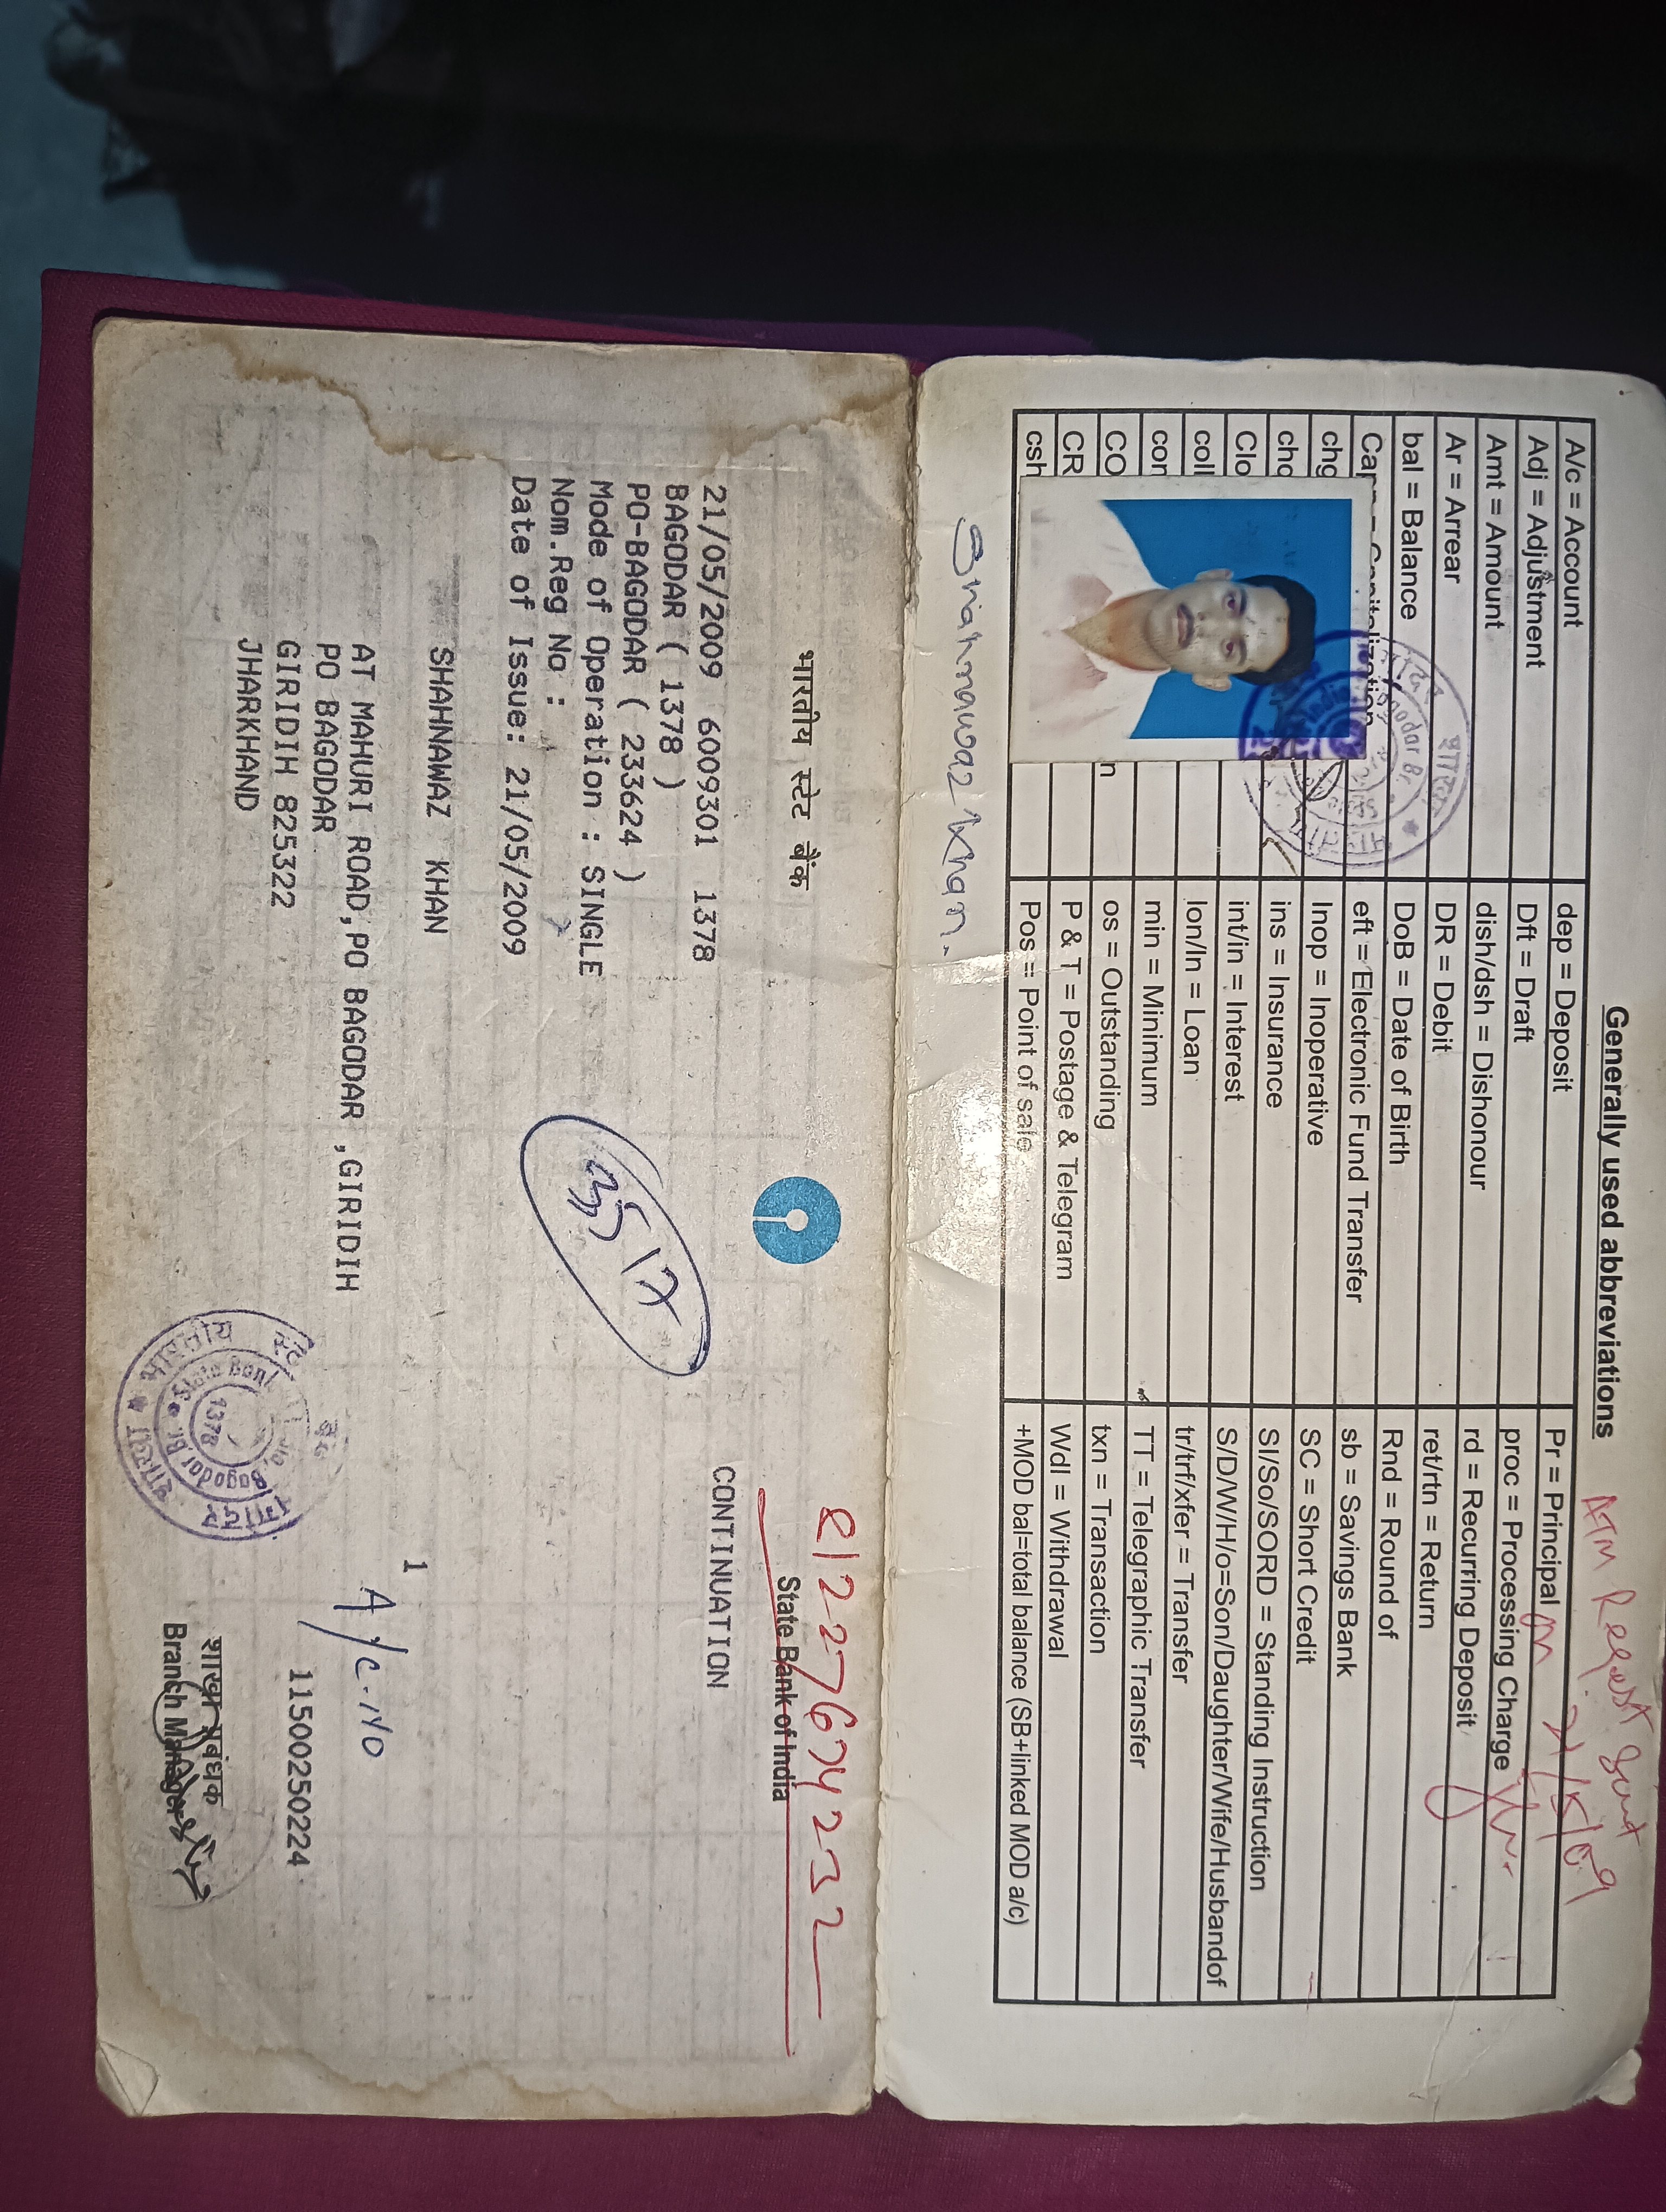 Generally used abbreviations
ATM Reqest Sent
21/5/09
A/c = Account
dep = Deposit
Pr = Principal
Adj = Adjustment
Dft = Draft
proc = Processing Charge
Amt = Amount
dish/dsh = Dishonour
rd = Recurring Deposit
Ar = Arrear
DR = Debit
ret/rtn = Return
bal = Balance
DoB = Date of Birth
Rnd = Round of
Cap = Capitalization
eft = Electronic Fund Transfer
sb = Savings Bank
chg
Inop = Inoperative
SC = Short Credit
chq
ins = Insurance
SI/So/SORD = Standing Instruction
Clo
int/in = Interest
S/D/W/H/o=Son/Daughter/Wife/Husbandof
coll
lon/ln = Loan
tr/trf/xfer = Transfer
cor
min = Minimum
TT = Telegraphic Transfer
CO
n
os = Outstanding
txn = Transaction
CR
P & T = Postage & Telegram
Wdl = Withdrawal
csh
Pos = Point of sale
+MOD bal=total balance (SB+linked MOD a/c)
Shahnawaz Khan.
भारतीय स्टेट बैंक
State Bank of India
21/05/2009 6009301 1378
CONTINUATION
BAGODAR ( 1378 )
PO-BAGODAR ( 233624 )
Mode of Operation : SINGLE
Nom.Reg No :
Date of Issue: 21/05/2009
3517
SHAHNAWAZ KHAN
1
A/c-No
AT MAHURI ROAD,PO BAGODAR ,GIRIDIH
PO BAGODAR
GIRIDIH 825322
11500250224
JHARKHAND
भारतीय स्टेट बैंक
State Bank
Bagodar Br.
1378
शाखा प्रबंधक
Branch Manager